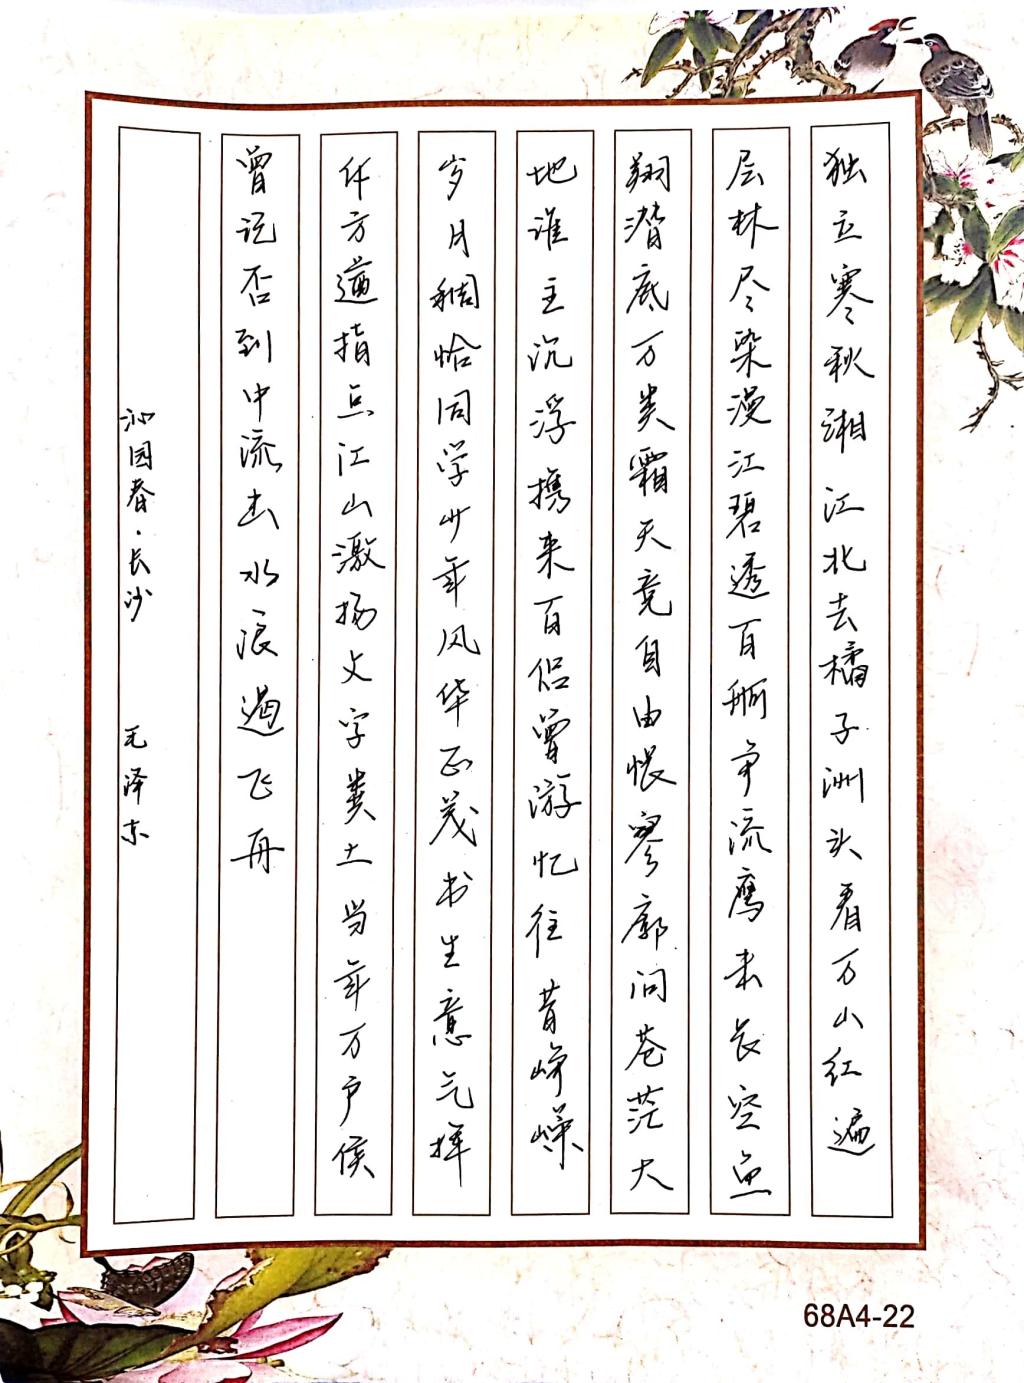 独立寒秋湘江北去橘子洲头看万山红遍
层林尽染漫江碧透百舸争流鹰击长空鱼
翔潜底万类霜天竞自由怅寥廓问苍茫大
地谁主沉浮携来百侣曾游忆往昔峥嵘
岁月稠恰同学少年风华正茂书生意气挥
斥方遒指点江山激扬文字粪土当年万户侯
曾记否到中流击水浪遏飞舟
沁园春·长沙 毛泽东
68A4-22